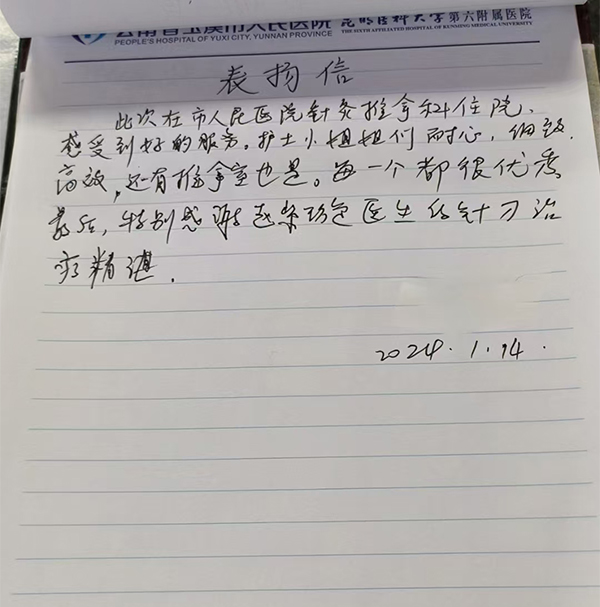 云南省玉溪市人民医院 昆明医科大学第六附属医院
PEOPLE'S HOSPITAL OF YUXI CITY, YUNNAN PROVINCE THE SIXTH AFFILIATED HOSPITAL OF KUNMING MEDICAL UNIVERSITY
表扬信
此次在市人民医院针灸推拿科住院、
感受到好的服务。护士小姐姐们耐心,细致.
高效,还有推拿室也是。每一个都很优秀
最后,特别感谢医生的针刀治
疗精湛.
2024.1.14.